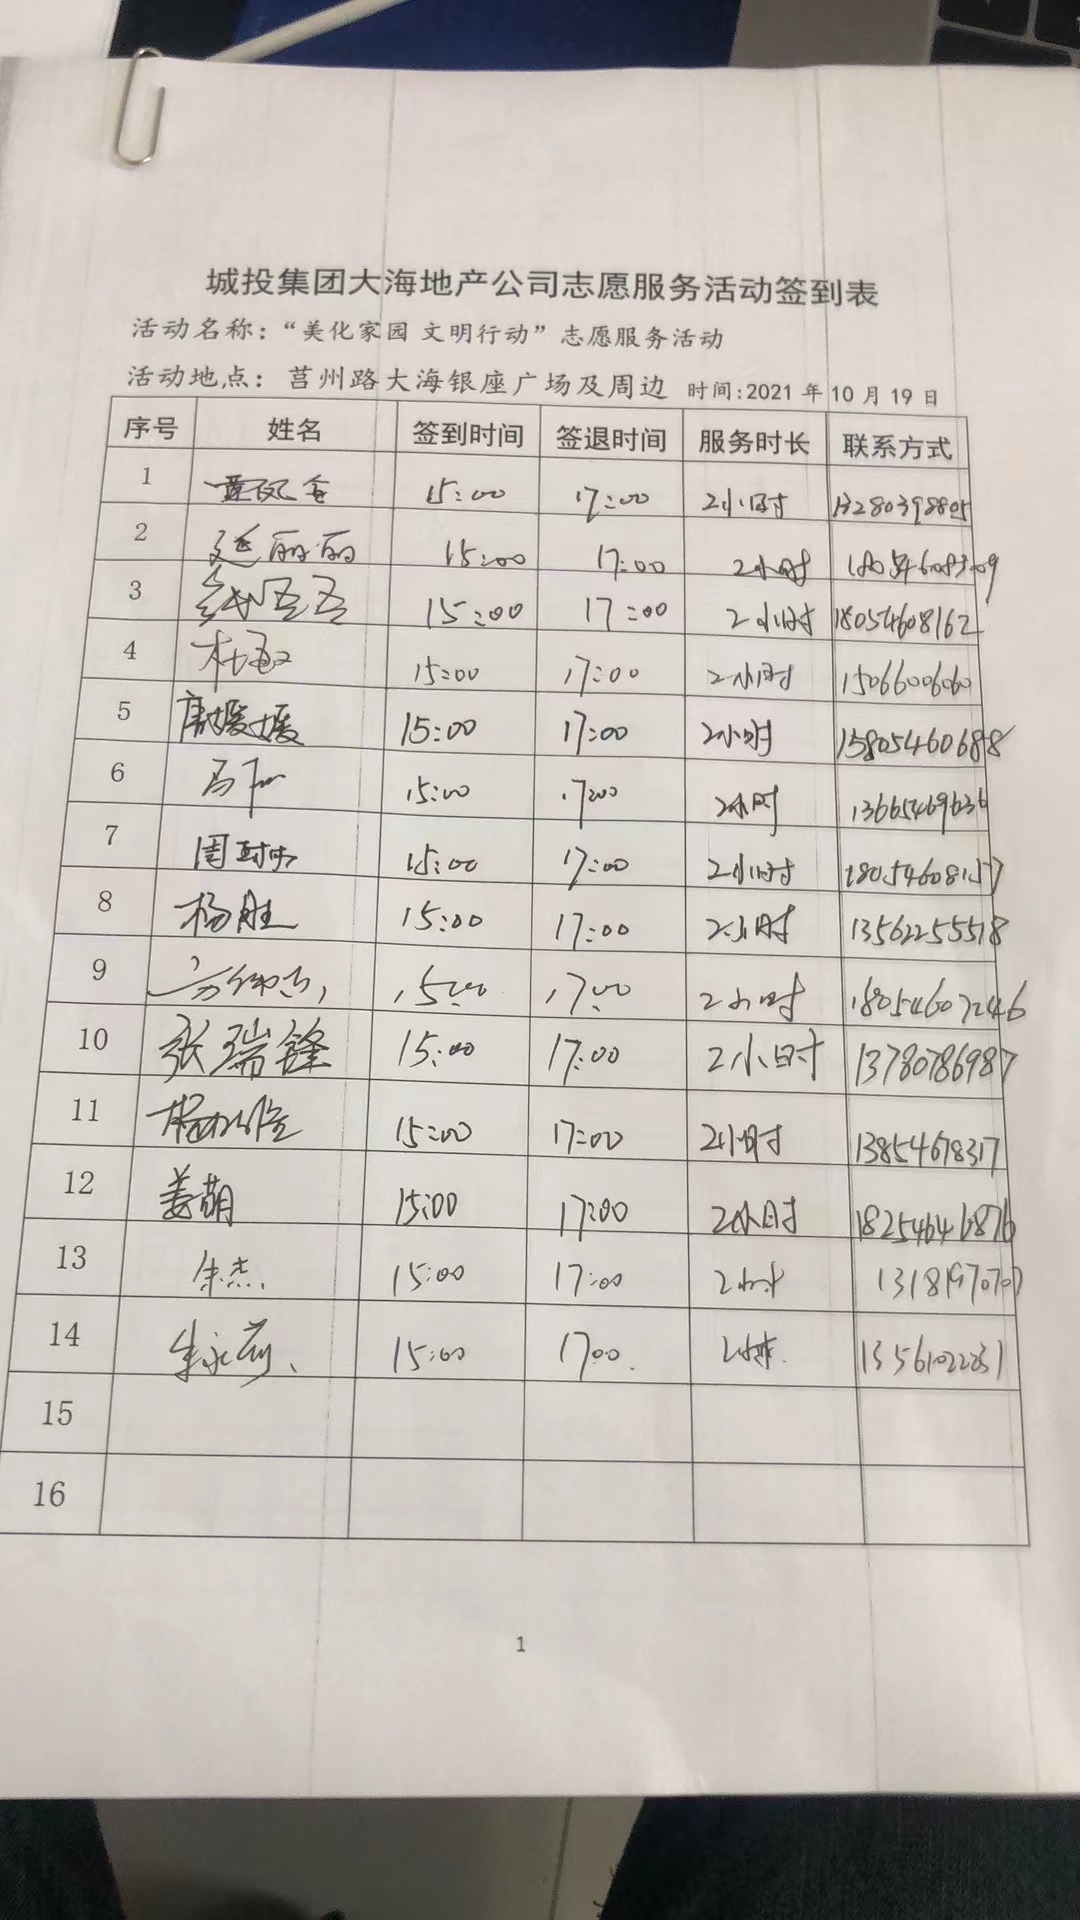 城投集团大海地产公司志愿服务活动签到表
活动名称：“美化家园 文明行动”志愿服务活动
活动地点：莒州路大海银座广场及周边 时间:2021 年 10 月 19 日
序号 姓名 签到时间 签退时间 服务时长 联系方式
1 15:00 17:00 2小时 13280398805
2 延丽丽 15:00 17:00 2小时
3 15:00 17:00 2小时 18054608162
4 杜敏 15:00 17:00 2小时 15066006060
5 唐媛媛 15:00 17:00 2小时 15805460688
6 15:00 17:00 2小时 13665469636
7 15:00 17:00 2小时 18054608157
8 杨胜 15:00 17:00 2小时 13562255518
9 15:00 17:00 2小时 18054607246
10 张瑞锋 15:00 17:00 2小时 13780786987
11 15:00 17:00 2小时 13854678317
12 姜萌 15:00 17:00 2小时 18254646876
13 朱杰 15:00 17:00 2小时 13181970707
14 15:00 17:00 2小时
15
16
1